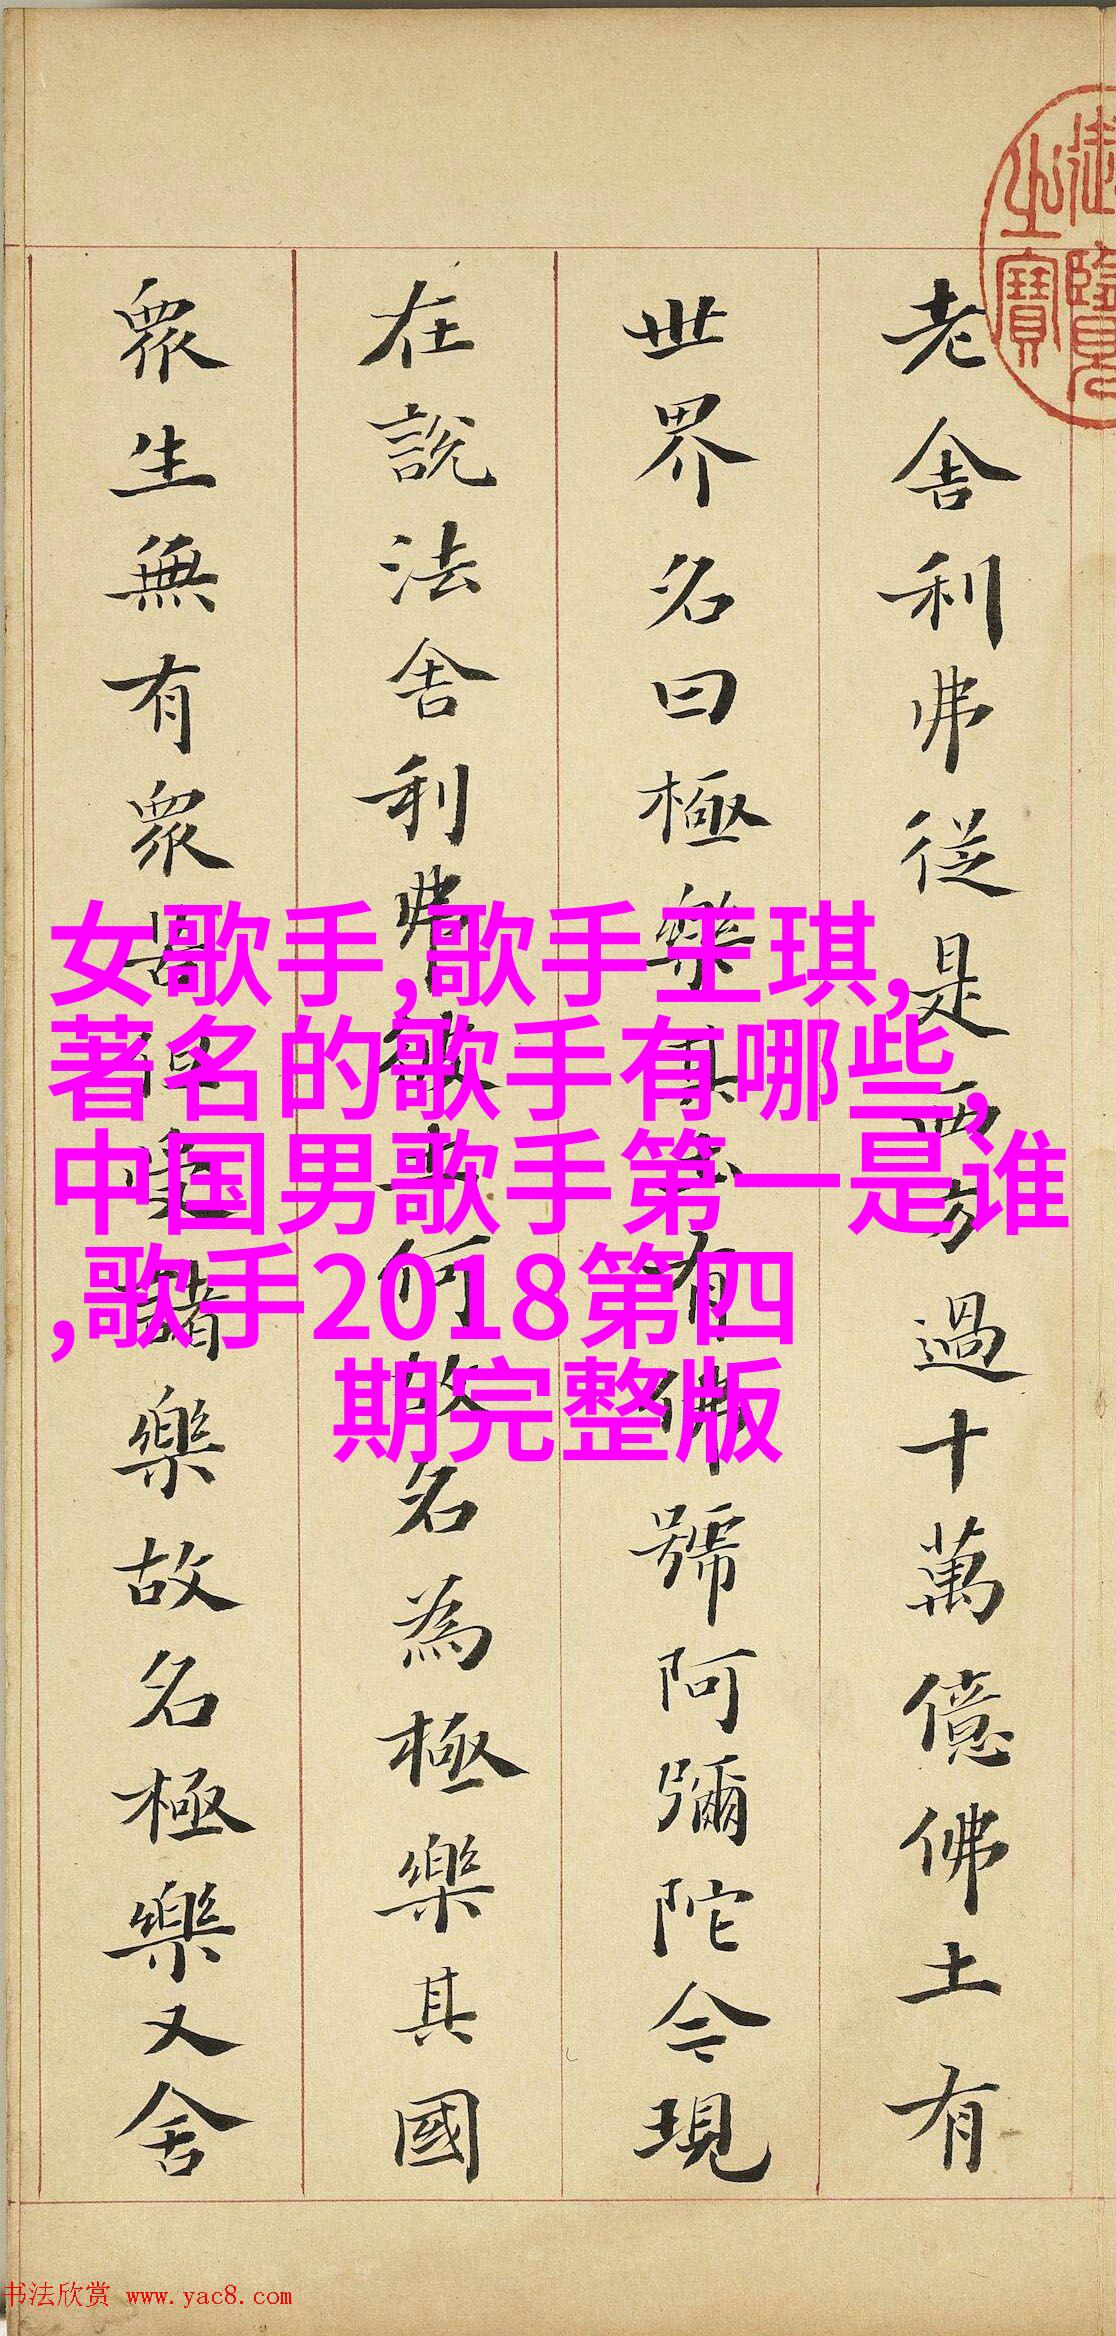 御覽
之寶
老舍利弗從是西方過十萬億佛土有
世界名曰極樂其土有佛號阿彌陀今現
在說法舍利弗彼土何故名為極樂其國
眾生無有眾苦但受諸樂故名極樂又舍
女歌手,歌手王琪,
著名的歌手有哪些,
中国男歌手第一是谁
,歌手2018第四
期完整版
书法欣赏 www.yac8.com